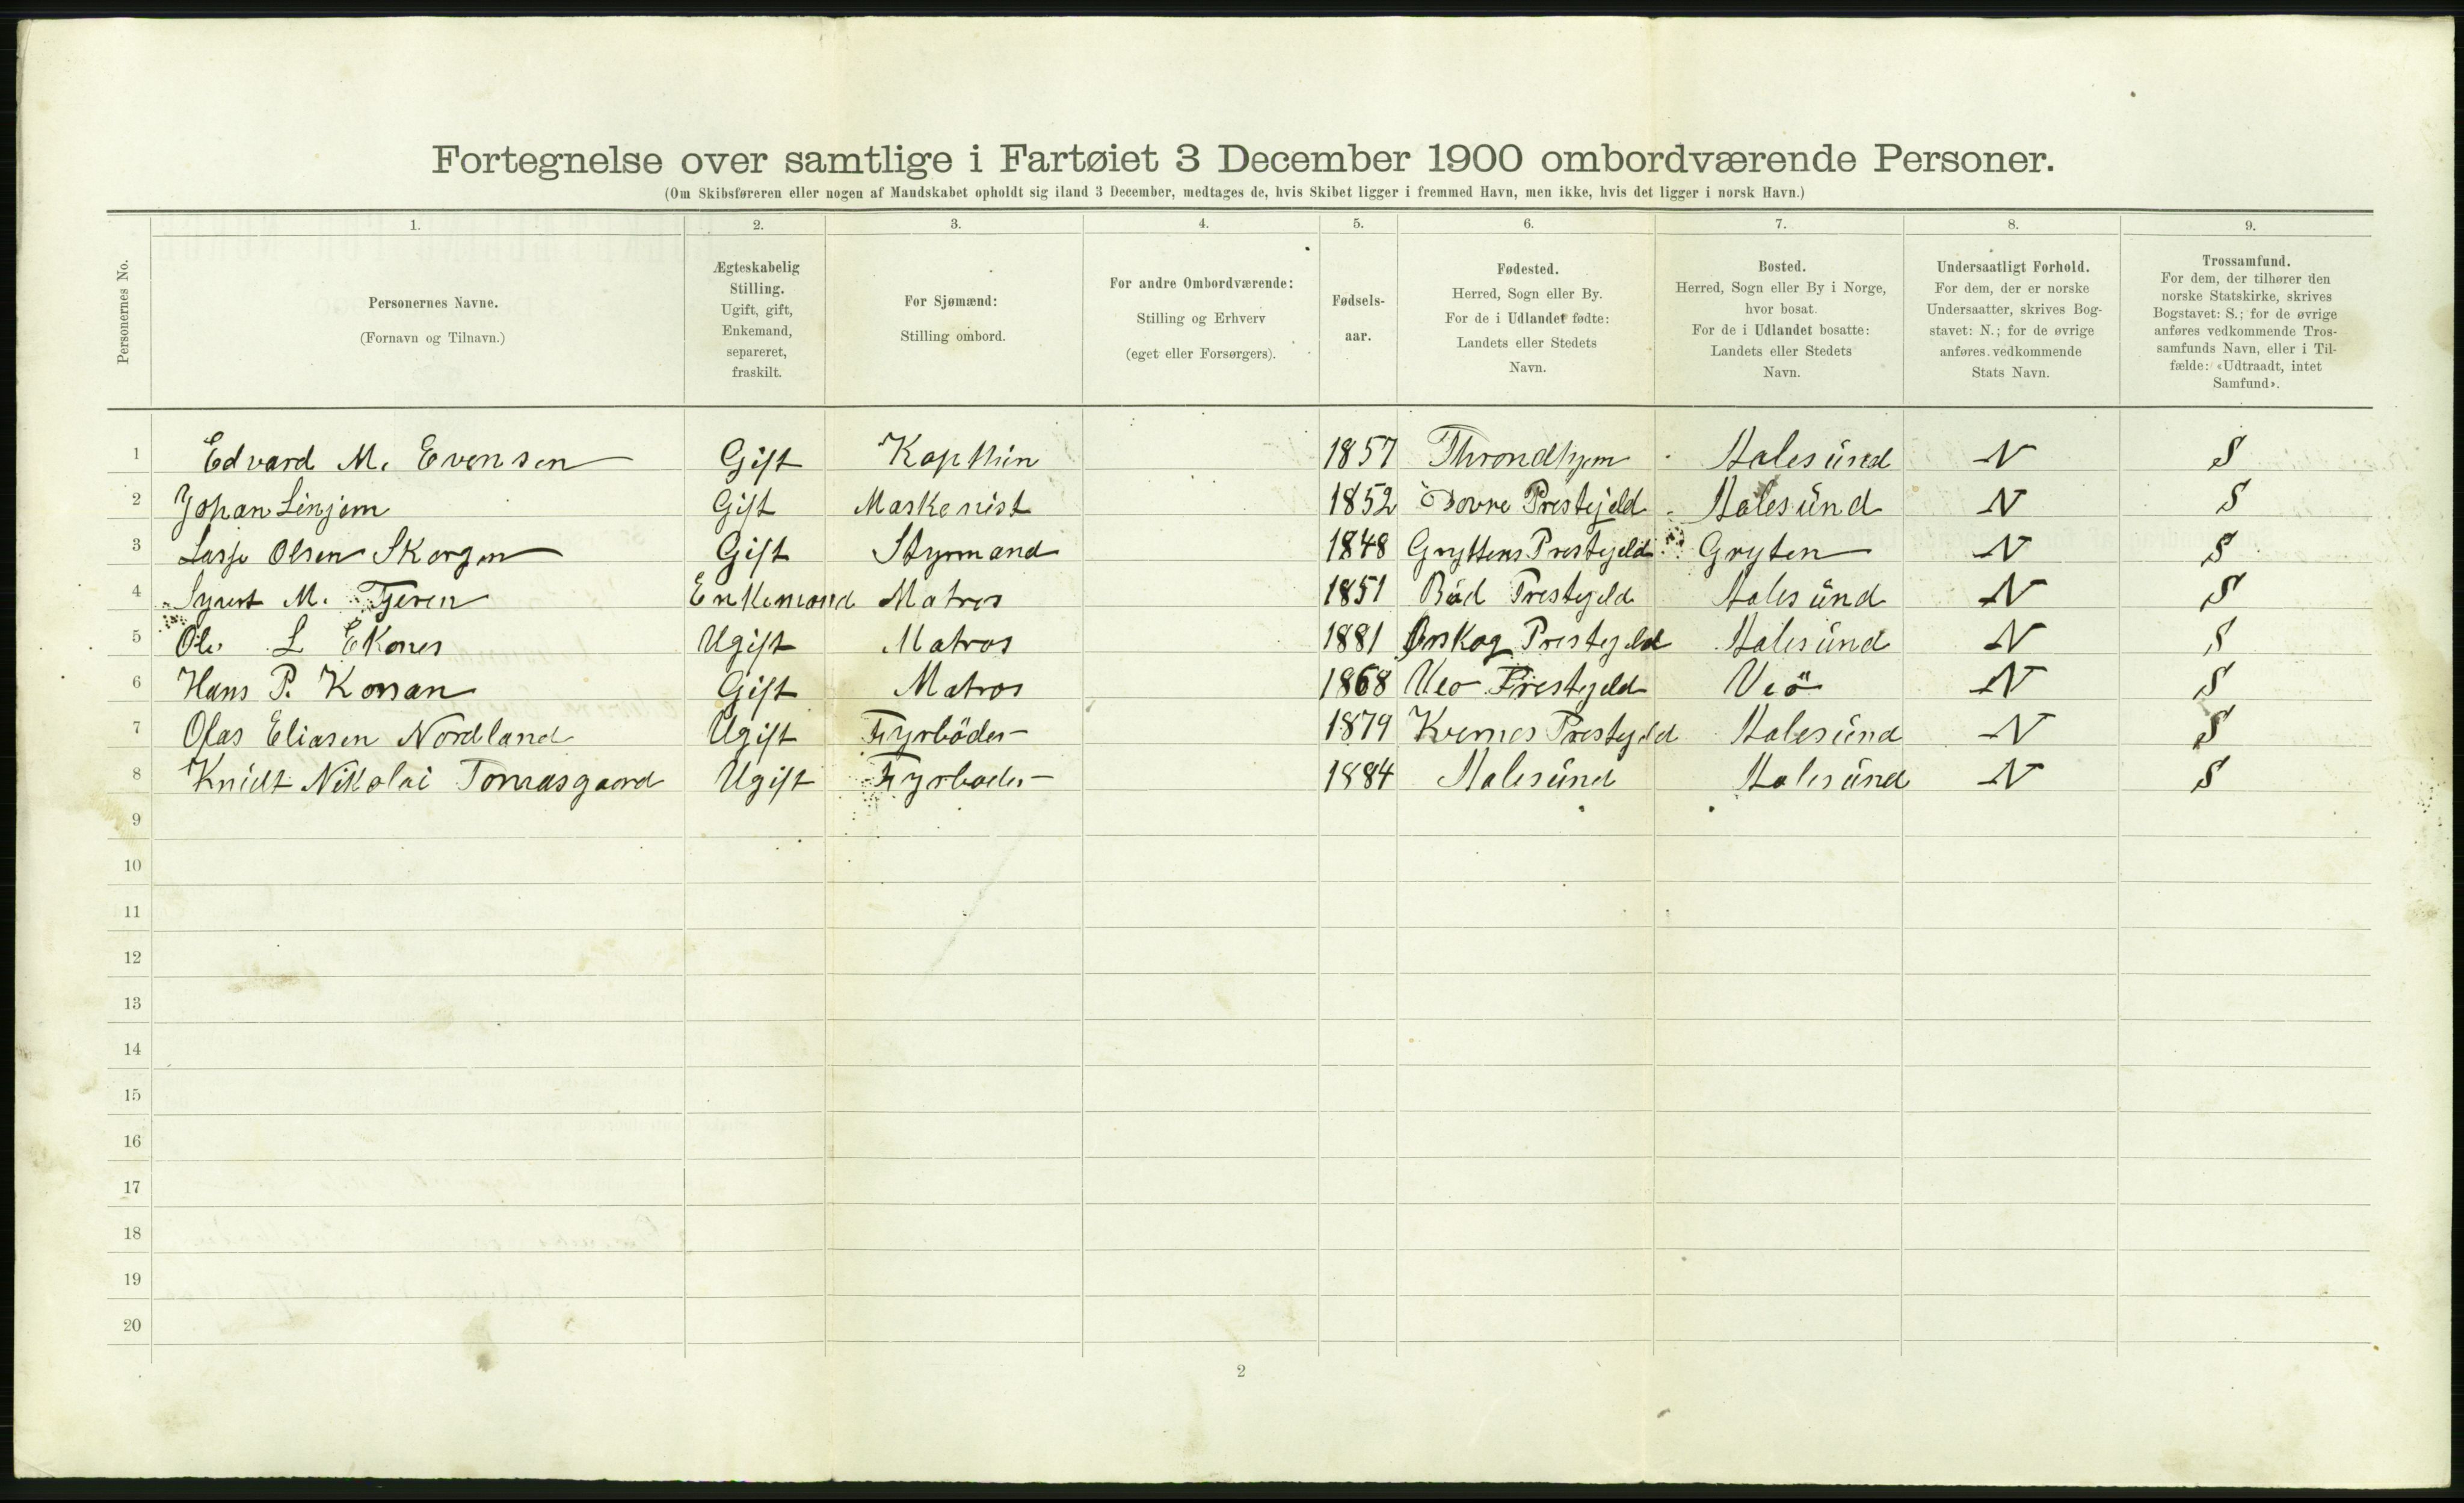 Fortegnelse over samtlige i Fartøiet 3 December 1900 ombordværende Personer.
(Om Skibsføreren eller nogen af Mandskabet opholdt sig iland 3 December, medtages de, hvis Skibet ligger i fremmed Havn, men ikke, hvis det ligger i norsk Havn.)
Personernes No.
1.
Personernes Navne.
(Fornavn og Tilnavn.)
2.
Ægteskabelig
Stilling.
Ugift, gift,
Enkemand,
separeret,
fraskilt.
3.
For Sjømænd:
Stilling ombord.
4.
For andre Ombordværende:
Stilling og Erhverv
(eget eller Forsørgers).
5.
Fødsels-
aar.
6.
Fødested.
Herred, Sogn eller By.
For de i Udlandet fødte:
Landets eller Stedets
Navn.
7.
Bosted.
Herred, Sogn eller By i Norge,
hvor bosat.
For de i Udlandet bosatte:
Landets eller Stedets
Navn.
8.
Undersaatligt Forhold.
For dem, der er norske
Undersaatter, skrives Bog-
stavet: N.; for de øvrige
anføres vedkommende
Stats Navn.
9.
Trossamfund.
For dem, der tilhører den
norske Statskirke, skrives
Bogstavet: S.; for de øvrige
anføres vedkommende Tros-
samfunds Navn, eller i Til-
fælde: «Udtraadt, intet
Samfund».
1 Edvard M. Evensen Gift 1857 Throndhjem Aalesund N S
2 Johan Linjem Gift Maskenist 1852 Dovre Prestejeld Aalesund N S
3 Olsen Skorgen Gift Styrmand 1848 Gryttens Prestejeld Gryten N S
4 M. Tjeren Enkemand Matros 1851 Bud Prestejeld Aalesund N S
5 Ole L Ekones Ugift Matros 1881 Ørskog Prestejeld Aalesund N S
6 Hans P. Gift Matros 1868 Veø Prestejeld Veö N S
7 Eliasen Nordland Ugift Fyrböder 1879 Prestejeld Aalesund N S
8 Nikolai Tomasgaard Ugift Fyrboder 1884 Aalesund Aalesund N S
9
10
11
12
13
14
15
16
17
18
19
20
2